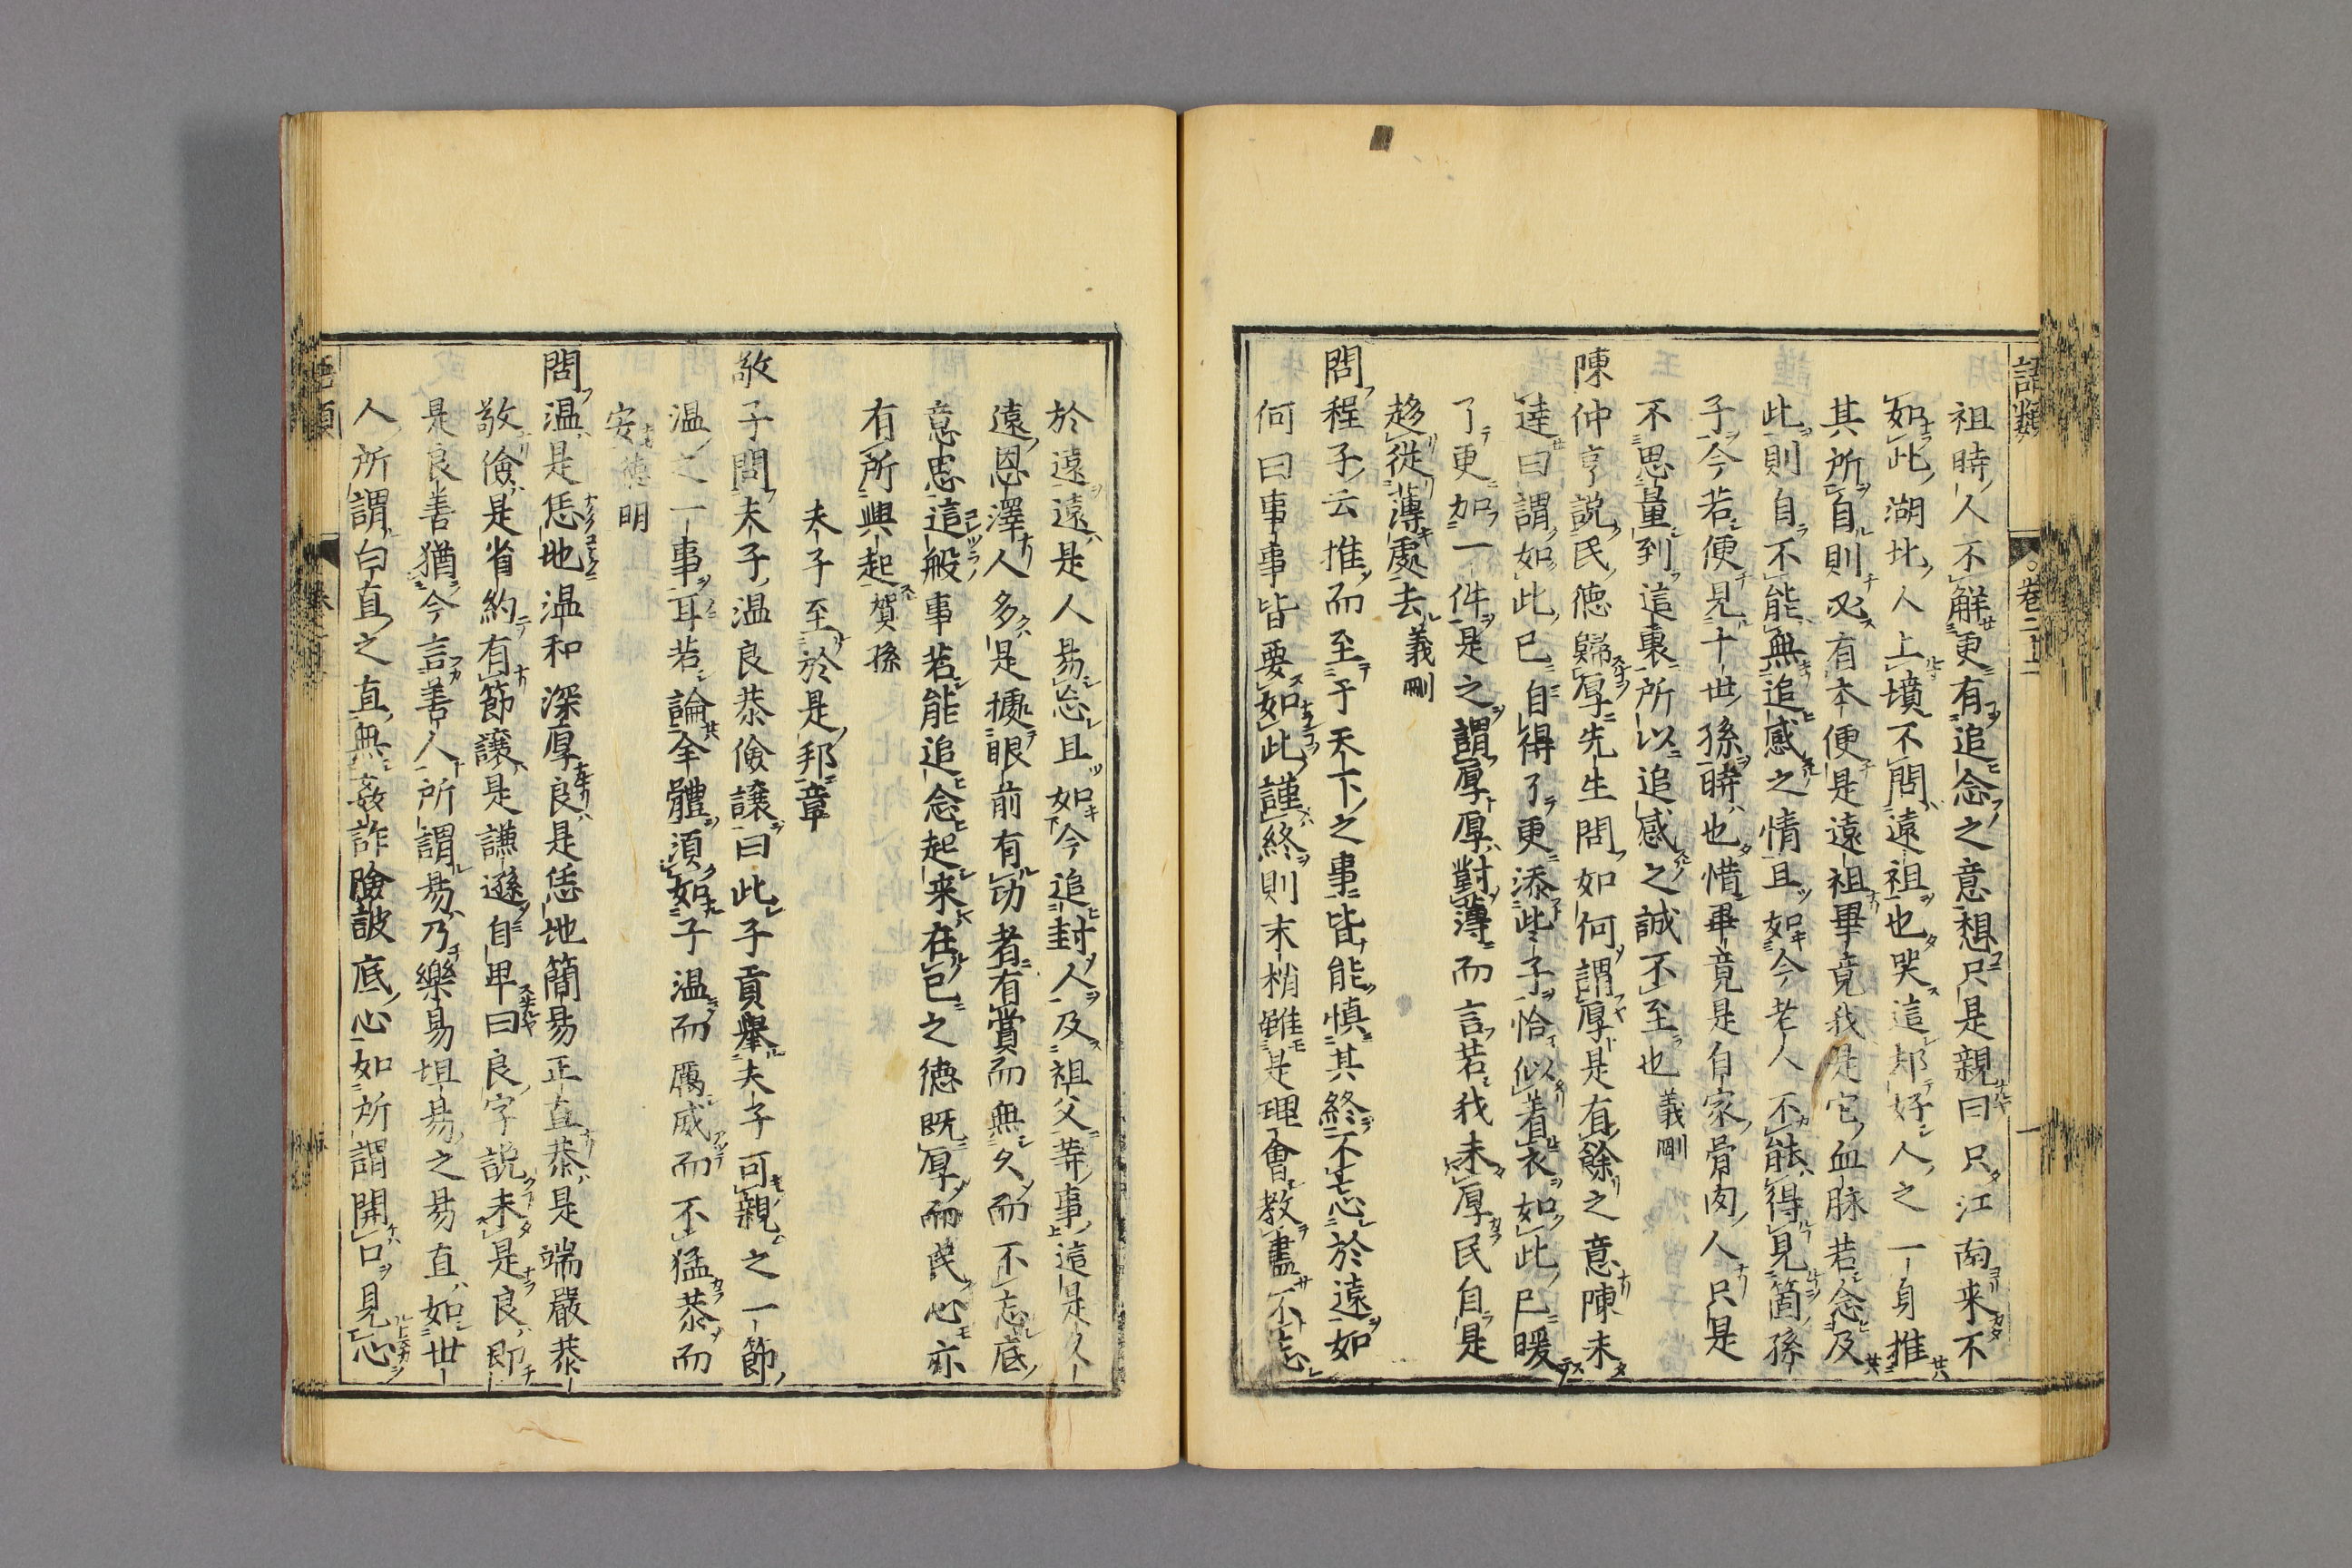 語類
〇巻二十二
一
祖時人不解更有追念之意想只是親曰只江南来不
如此湖北人上墳不問遠祖也哭這却好人之一身推
其所自則必有本便是遠祖畢竟我是它血脉若念及
此則自不能無追感之情且如今老人不能得見箇孫
子今若便見十世孫時也惜畢竟是自家骨肉人只是
不思量到這裏所以追感之誠不至也義剛
陳仲亨説民德歸厚先生問如何謂厚是有餘之意陳未
達曰謂如此已自得了更添些子恰似著衣如此已暖
了更加一件是之謂厚厚對薄而言若我未厚民自是
趍從薄處去義剛
問程子云推而至于天下之事皆能慎其終不忘於遠如
何曰事事皆要如此謹終則末梢雖是理會教盡不忘
於遠遠是人易忘且如今追封人及祖父等事這是久
遠恩澤人多是據眼前有功者有賞而無久而不忘底
意思這般事若能追念起来在己之德既厚而民心亦
有所興起賀孫
夫子至於是邦章
敬子問夫子温良恭儉讓曰此子貢舉夫子可親之一節
温之一事耳若論全體須如子温而厲威而不猛恭而
安德明
問温是恁地温和深厚良是恁地簡易正直恭是端嚴恭
敬儉是省約有節讓是謙遜自卑曰良字説未是良即
是良善猶今言善人所謂易乃樂易坦易之易直如世
人所謂白直之直無姦詐險詖底心如所謂開口見心